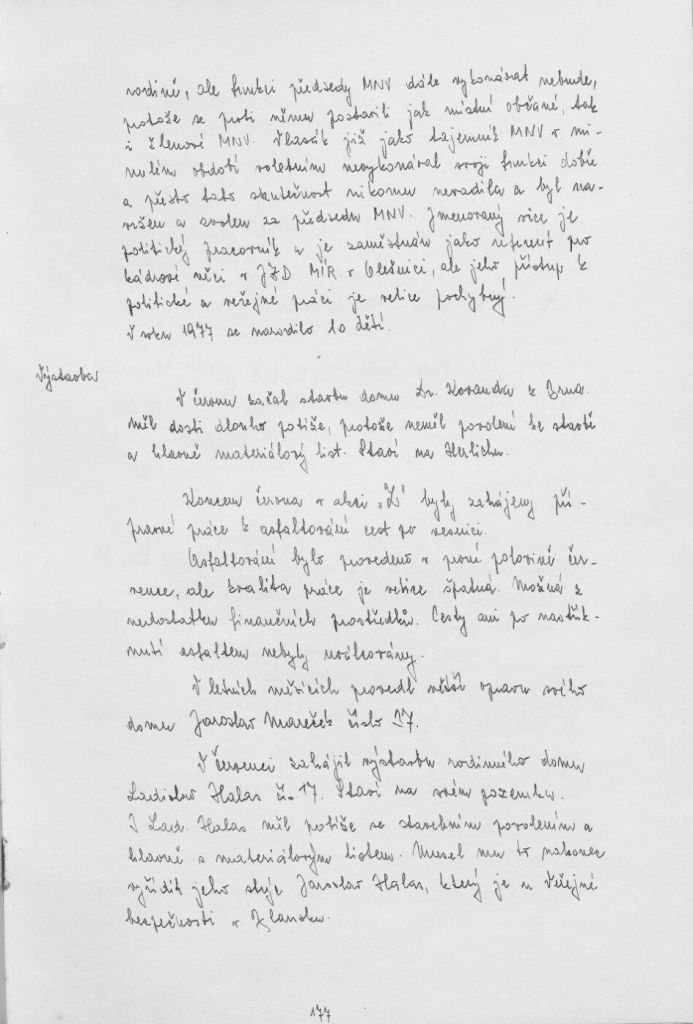 rodině, ale funkci předsedy MNV dále vykonávat nebude,
protože se proti němu postavili jak místní občané, tak
i členové MNV. Vlasák již jako tajemník MNV v mi-
nulém období volebním nevykonával svoji funkci dobře
a přesto tato skutečnost nikomu nevadila a byl na-
vržen a zvolen za předsedu MNV. Jmenovaný sice je
politický pracovník a je zaměstnán jako referent pro
kádrové věci v JZD MÍR v Olešnici, ale jeho přístup k
politické a veřejné práci je velice pochybný.
V roku 1977 se narodilo 10 dětí.
Výstavba
V červnu začal stavbu domu Dr. Koranda z Brna.
Měl dosti dlouho potíže, protože neměl povolení ke stavbě
a hlavně materiálový list. Staví na Herlichu.
Koncem června v akci "Z" byly zahájeny pří-
pravné práce k asfaltování cest po vesnici.
Asfaltování bylo provedeno v první polovině čer-
vence, ale kvalita práce je velice špatná. Možná z
nedostatku finančních prostředků. Cesty ani po nastřík-
nutí asfaltem nebyly uválcovány.
V letních měsících provedl větší opravu svého
domu Jaroslav Mareček číslo 17.
V červenci zahájil výstavbu rodinného domu
Ladislav Halas č. 17. Staví na svém pozemku.
I Lad. Halas měl potíže se stavebním povolením a
hlavně s materiálovým listem. Musel mu to nakonec
vyřídit jeho strýc Jaroslav Halas, který je u Veřejné
bezpečnosti v Blansku.
177